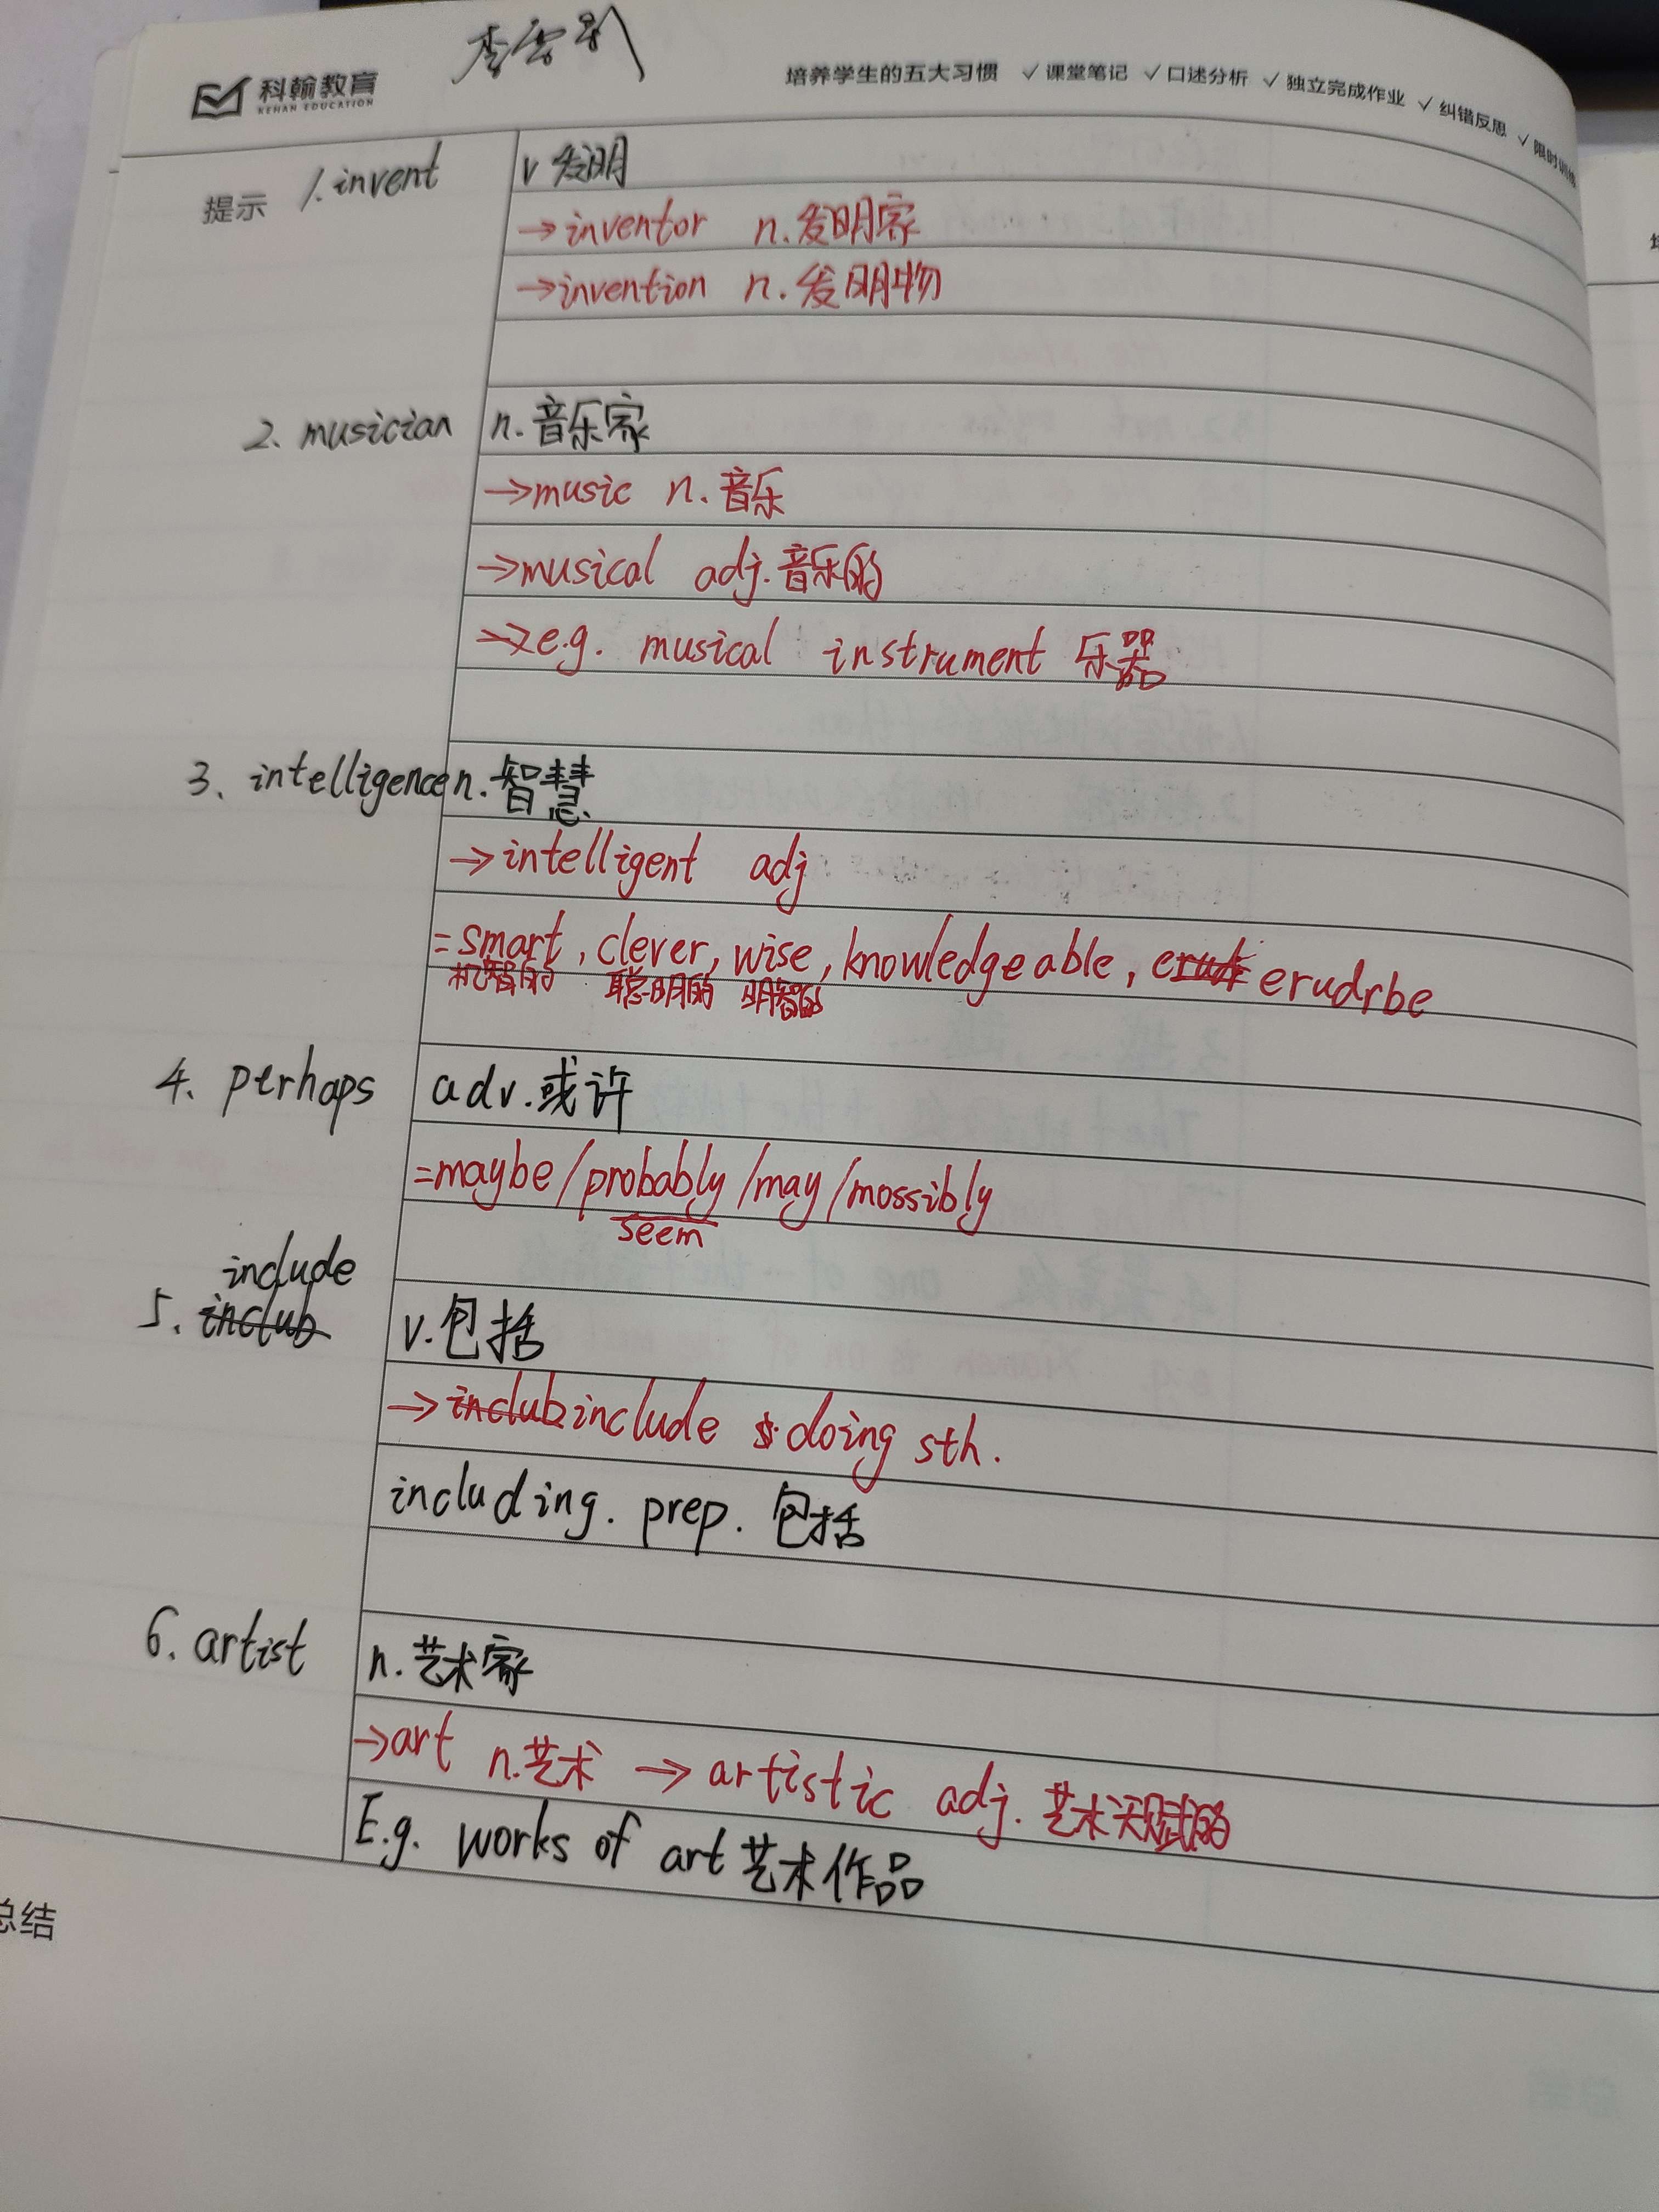 科翰教育
KEHAN EDUCATION
培养学生的五大习惯 ✓课堂笔记 ✓口述分析 ✓独立完成作业 ✓纠错反思 ✓限时训练
提示 1.invent v 发明
→inventor n.发明家
→invention n.发明物
2、musician n.音乐家
→music n.音乐
→musical adj.音乐的
→e.g. musical instrument 乐器
3、intelligence n.智慧
→intelligent adj
=smart, clever, wise, knowledgeable, erudrbe
机智的 聪明的 明智的
4、perhaps adv.或许
=maybe/probably/may/mossibly
seem
include
5、inclub v.包括
→inclub include doing sth.
including. prep. 包括
6.artist n.艺术家
→art n.艺术 → artistic adj.艺术天赋的
E.g. works of art 艺术作品
总结